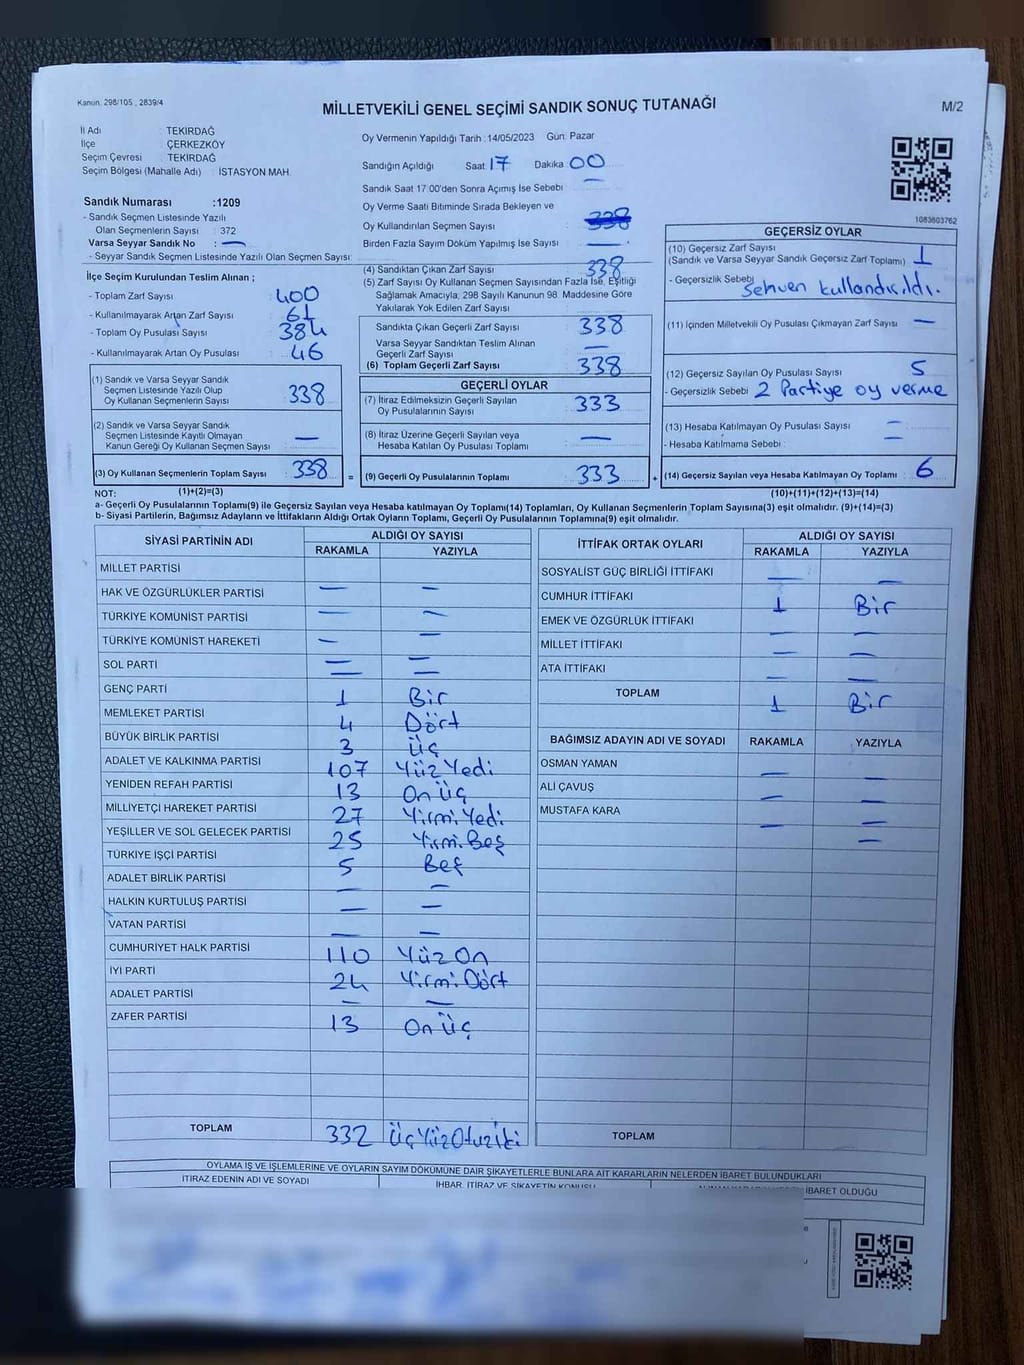 Kanun. 298/105 , 2839/4
MİLLETVEKİLİ GENEL SEÇİMİ SANDIK SONUÇ TUTANAĞI
M/2
İl Adı : TEKİRDAĞ
İlçe : ÇERKEZKÖY
Seçim Çevresi : TEKİRDAĞ
Seçim Bölgesi (Mahalle Adı) : İSTASYON MAH.
Sandık Numarası :1209
- Sandık Seçmen Listesinde Yazılı
Olan Seçmenlerin Sayısı : 372
Varsa Seyyar Sandık No : —
- Seyyar Sandık Seçmen Listesinde Yazılı Olan Seçmen Sayısı:
İlçe Seçim Kurulundan Teslim Alınan ;
- Toplam Zarf Sayısı : 400
- Kullanılmayarak Artan Zarf Sayısı : 61
- Toplam Oy Pusulası Sayısı : 384
- Kullanılmayarak Artan Oy Pusulası : 46
(1) Sandık ve Varsa Seyyar Sandık
Seçmen Listesinde Yazılı Olup
Oy Kullanan Seçmenlerin Sayısı : 338
(2) Sandık ve Varsa Seyyar Sandık
Seçmen Listesinde Kayıtlı Olmayan
Kanun Gereği Oy Kullanan Seçmen Sayısı : —
(3) Oy Kullanan Seçmenlerin Toplam Sayısı : 338
Oy Vermenin Yapıldığı Tarih :14/05/2023 Gün: Pazar
Sandığın Açıldığı Saat: 17 Dakika: 00
Sandık Saat 17:00'den Sonra Açımış İse Sebebi : —
Oy Verme Saati Bitiminde Sırada Bekleyen ve
Oy Kullandırılan Seçmen Sayısı : 338
Birden Fazla Sayım Döküm Yapılmış İse Sayısı : —
(4) Sandıktan Çıkan Zarf Sayısı : 338
(5) Zarf Sayısı Oy Kullanan Seçmen Sayısından Fazla İse, Eşitliği
Sağlamak Amacıyla; 298 Sayılı Kanunun 98. Maddesine Göre
Yakılarak Yok Edilen Zarf Sayısı :
Sandıkta Çıkan Geçerli Zarf Sayısı : 338
Varsa Seyyar Sandıktan Teslim Alınan
Geçerli Zarf Sayısı : —
(6) Toplam Geçerli Zarf Sayısı : 338
GEÇERLİ OYLAR
(7) İtiraz Edilmeksizin Geçerli Sayılan
Oy Pusulalarının Sayısı : 333
(8) İtiraz Üzerine Geçerli Sayılan veya
Hesaba Katılan Oy Pusulası Toplamı : —
= (9) Geçerli Oy Pusulalarının Toplamı : 333
1083603762
GEÇERSİZ OYLAR
(10) Geçersiz Zarf Sayısı
(Sandık ve Varsa Seyyar Sandık Geçersiz Zarf Toplamı) : 1
- Geçersizlik Sebebi : Sehven kullandırıldı.
(11) İçinden Milletvekili Oy Pusulası Çıkmayan Zarf Sayısı : —
(12) Geçersiz Sayılan Oy Pusulası Sayısı : 5
- Geçersizlik Sebebi : 2 Partiye oy verme
(13) Hesaba Katılmayan Oy Pusulası Sayısı : —
- Hesaba Katılmama Sebebi : —
+ (14) Geçersiz Sayılan veya Hesaba Katılmayan Oy Toplamı : 6
NOT: (1)+(2)=(3) (10)+(11)+(12)+(13)=(14)
a- Geçerli Oy Pusulalarının Toplamı(9) ile Geçersiz Sayılan veya Hesaba katılmayan Oy Toplamı(14) Toplamları, Oy Kullanan Seçmenlerin Toplam Sayısına(3) eşit olmalıdır. (9)+(14)=(3)
b- Siyasi Partilerin, Bağımsız Adayların ve İttifakların Aldığı Ortak Oyların Toplamı, Geçerli Oy Pusulalarının Toplamına(9) eşit olmalıdır.
SİYASİ PARTİNİN ADI ALDIĞI OY SAYISI
RAKAMLA YAZIYLA
MİLLET PARTİSİ
HAK VE ÖZGÜRLÜKLER PARTİSİ — —
TÜRKİYE KOMÜNİST PARTİSİ — —
TÜRKİYE KOMÜNİST HAREKETİ — —
SOL PARTİ — —
GENÇ PARTİ 1 Bir
MEMLEKET PARTİSİ 4 Dört
BÜYÜK BİRLİK PARTİSİ 3 Üç
ADALET VE KALKINMA PARTİSİ 107 Yüz Yedi
YENİDEN REFAH PARTİSİ 13 On Üç
MİLLİYETÇİ HAREKET PARTİSİ 27 Yirmi Yedi
YEŞİLLER VE SOL GELECEK PARTİSİ 25 Yirmi Beş
TÜRKİYE İŞÇİ PARTİSİ 5 Beş
ADALET BİRLİK PARTİSİ — —
HALKIN KURTULUŞ PARTİSİ — —
VATAN PARTİSİ — —
CUMHURİYET HALK PARTİSİ 110 Yüz On
İYİ PARTİ 24 Yirmi Dört
ADALET PARTİSİ — —
ZAFER PARTİSİ 13 On Üç
TOPLAM 332 Üç Yüz Otuz İki
İTTİFAK ORTAK OYLARI ALDIĞI OY SAYISI
RAKAMLA YAZIYLA
SOSYALİST GÜÇ BİRLİĞİ İTTİFAKI — —
CUMHUR İTTİFAKI 1 Bir
EMEK VE ÖZGÜRLÜK İTTİFAKI — —
MİLLET İTTİFAKI — —
ATA İTTİFAKI — —
TOPLAM 1 Bir
BAĞIMSIZ ADAYIN ADI VE SOYADI RAKAMLA YAZIYLA
OSMAN YAMAN — —
ALİ ÇAVUŞ — —
MUSTAFA KARA — —
TOPLAM
OYLAMA İŞ VE İŞLEMLERİNE VE OYLARIN SAYIM DÖKÜMÜNE DAİR ŞİKAYETLERLE BUNLARA AİT KARARLARIN NELERDEN İBARET BULUNDUKLARI
İTİRAZ EDENİN ADI VE SOYADI İHBAR, İTİRAZ VE ŞİKAYETİN KONUSU İBARET OLDUĞU